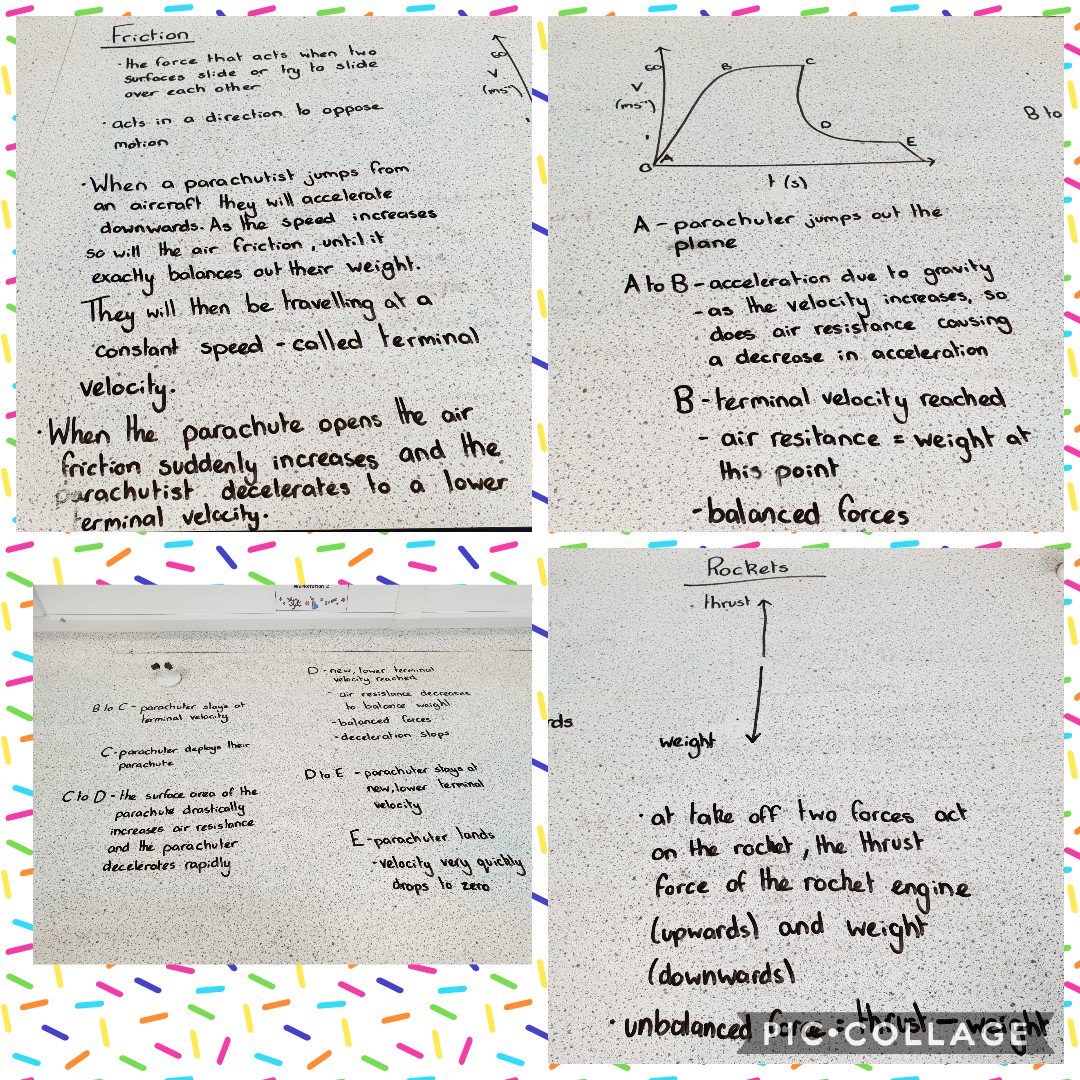 Friction
· the force that acts when two
surfaces slide or try to slide
over each other
· acts in a direction to oppose
motion
· When a parachutist jumps from
an aircraft they will accelerate
downwards. As the speed increases
so will the air friction, until it
exactly balances out their weight.
They will then be travelling at a
constant speed - called terminal
velocity.
· When the parachute opens the air
friction suddenly increases and the
parachutist decelerates to a lower
terminal velocity.
60
V
(ms⁻¹)
60
V
(ms⁻¹)
O
A
B
C
D
E
t (s)
B to
A - parachuter jumps out the
plane
A to B - acceleration due to gravity
- as the velocity increases, so
does air resistance causing
a decrease in acceleration
B - terminal velocity reached
- air resitance = weight at
this point
- balanced forces
B to C - parachuter stays at
terminal velocity
C - parachuter deploys their
parachute
C to D - the surface area of the
parachute drastically
increases air resistance
and the parachuter
decelerates rapidly
D - new, lower terminal
velocity reached
- air resistance decreases
to balance weight
- balanced forces
- deceleration stops
D to E - parachuter stays at
new, lower terminal
velocity
E - parachuter lands
- velocity very quickly
drops to zero
Rockets
thrust
weight
rds
· at take off two forces act
on the rocket, the thrust
force of the rocket engine
(upwards) and weight
(downwards)
· unbalanced force = thrust - weight
PIC•COLLAGE